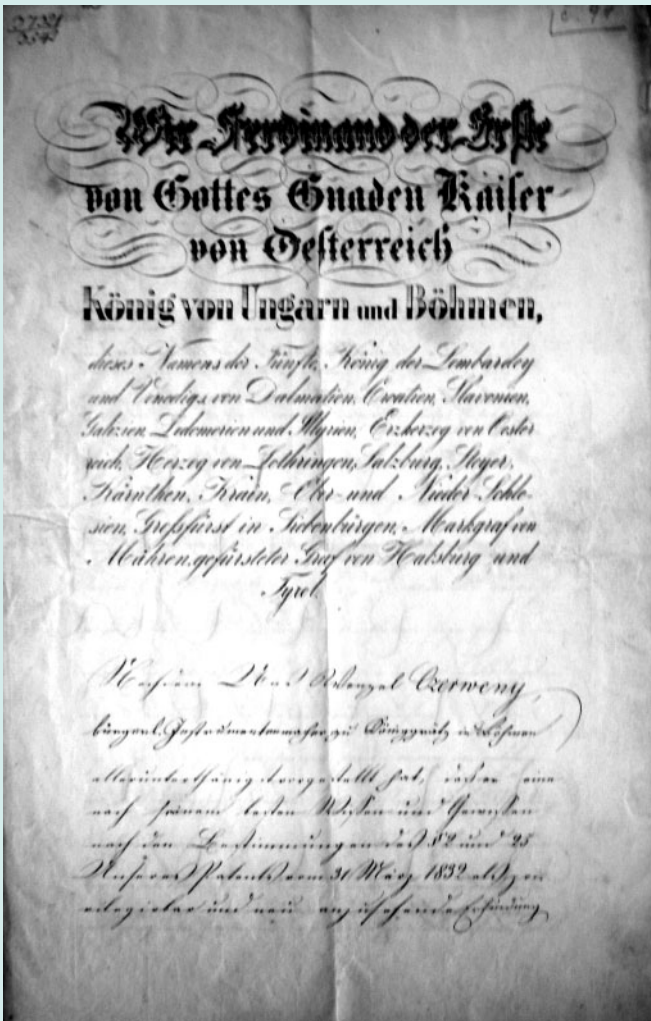 Wir Ferdinand der Erste
von Gottes Gnaden Kaiser
von Oesterreich
König von Ungarn und Böhmen,
dieses Namens der Fünfte, König der Lombardey
und Venedigs, von Dalmatien, Croatien, Slavonien,
Galizien, Lodomerien und Illyrien, Erzherzog von Oester
reich, Herzog von Lothringen, Salzburg, Steyer,
Kärnthen, Krain, Ober- und Nieder-Schle-
sien, Großfürst in Siebenbürgen, Markgraf von
Mähren, gefürsteter Graf von Habsburg und
Tyrol
Nachdem Uns Wenzel Czerweny,
bürgerl. Instrumentenmacher zu Königgrätz in Böhmen
allerunterthänigst vorgestellt hat, daß er eine
nach seinem besten Wissen und Gewissen
nach den Bestimmungen des § 2 und 25
Unseres Patents vom 31 März 1832 als pri
vilegirbar und neu anzusehende Erfindung